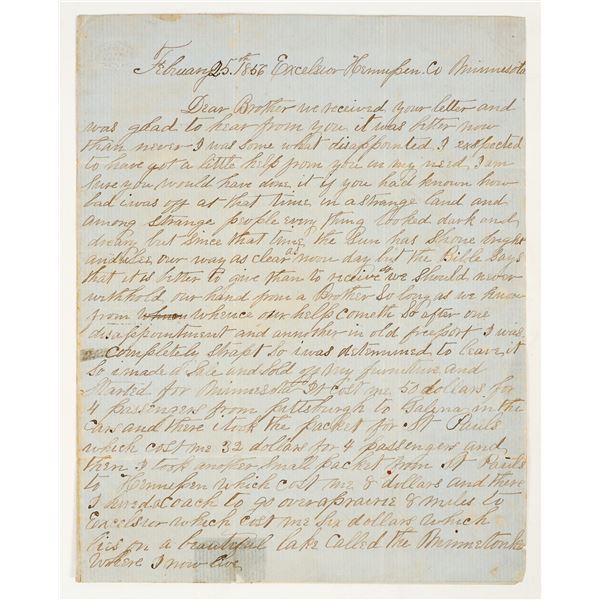 February 25th 1856 Excelsior Hennepen. Co Minnesota
Dear Brother we received your letter and
was glad to hear from you it was bitter now
than never I was some what disappointed I exspected
to have got a little help from you in my need I am
sure you would have done it if you had known how
bad i was off at that time in a strange land and
among strange people every thing looked dark and
dreary but since that time the Sun has Shone bright
and our way as clear as noon day but the Bible Says
that it is bitter to give than to receive we Should never
withhold our hand from a Brother So long as we know
from whence our help cometh So after one
disappointment and annother in old freeport I was
Completely Strapt So i was determined to leave it
So i made a Sale and Sold off my furniture and
Started for Minnesota It Cost me 50 dollars for
4 passengers from pittsburgh to Galena in the
Cars and there i took the packet for St Pauls
which cost me 32 dollars for 4 passengers and
then I took another Small packet from St Pauls
to Hennepen which cost me 8 dollars and there
I hired a Coach to go over a prairie 8 miles to
Excelsior which cost me Six dollars which
lies on a beautiful lake Called the Minnetonka
Where I now live